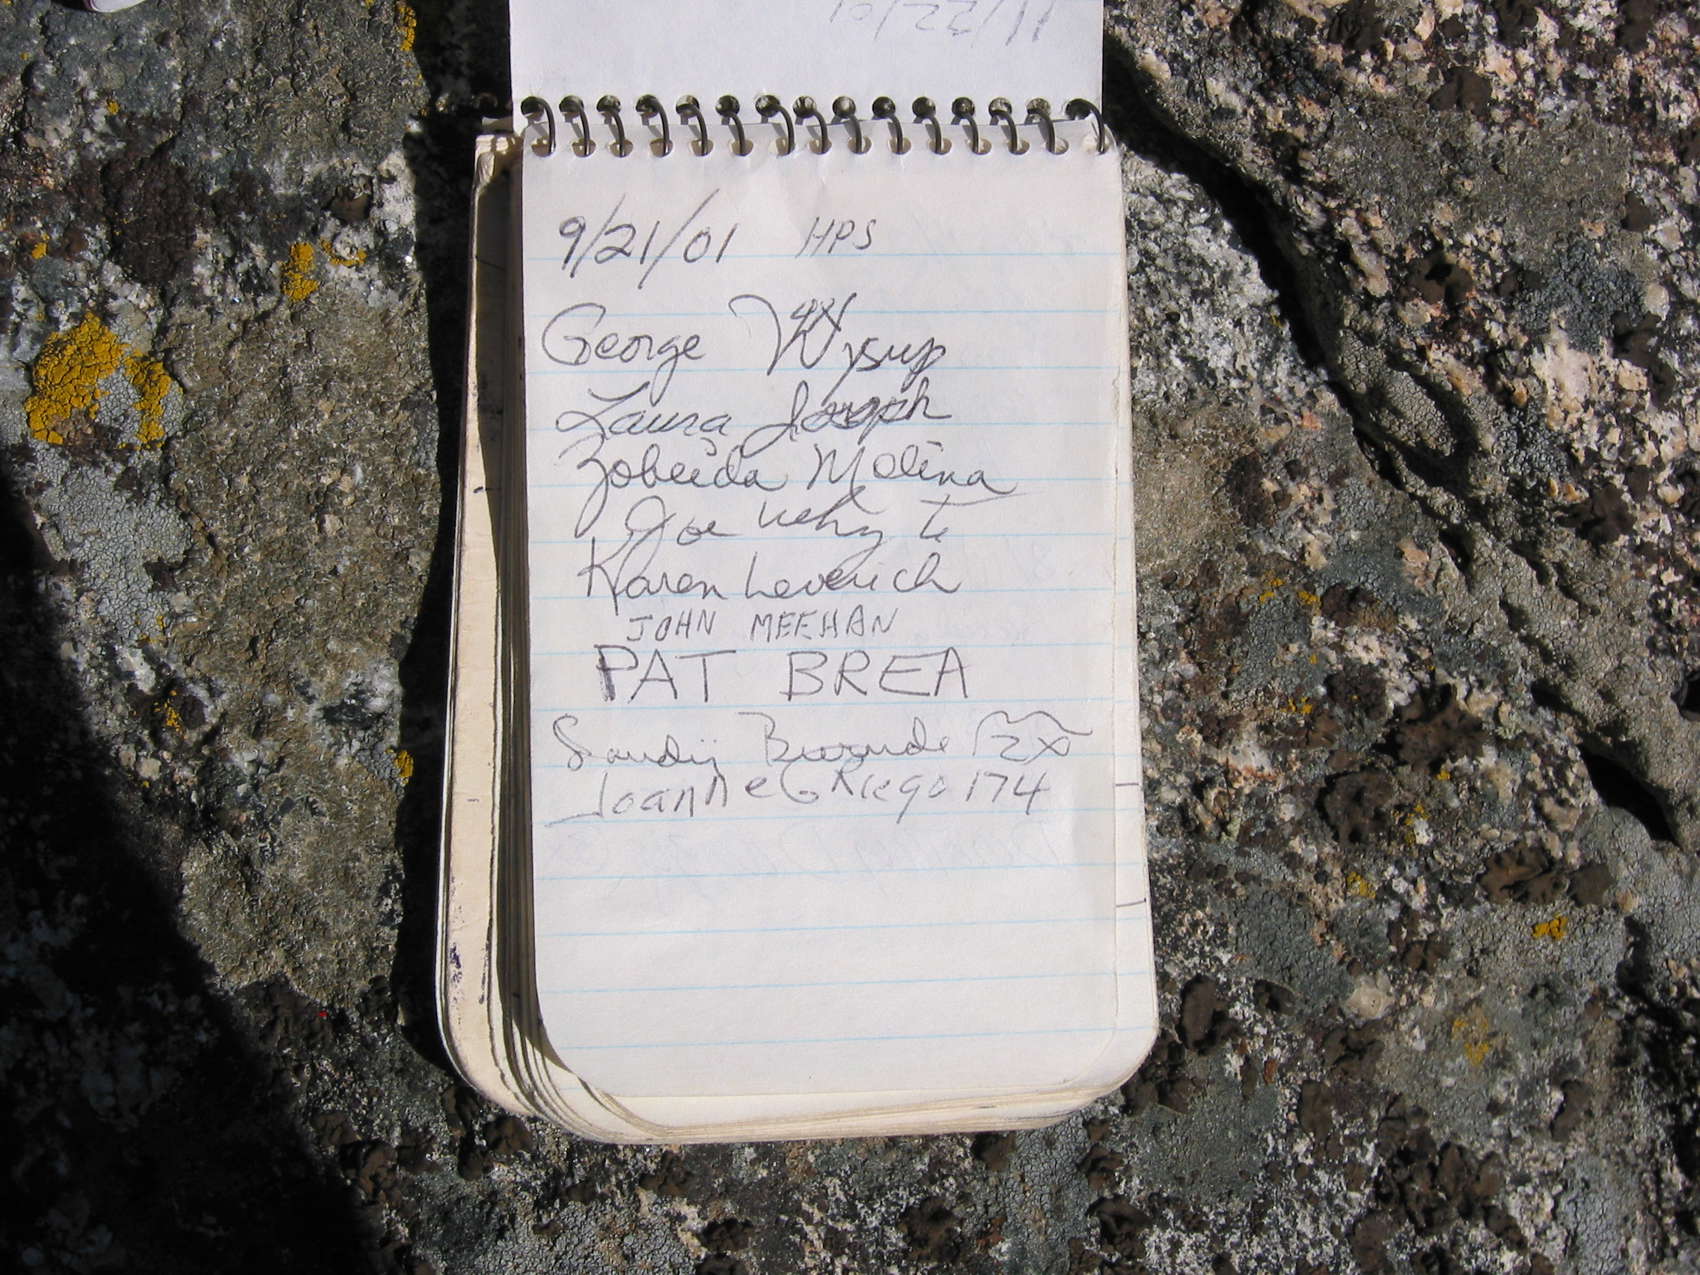 10/22/11
9/21/01 HPS
George Wysup 4X
Laura Joseph
Zobeida Molina
Joe
Karen Leverich
JOHN MEEHAN
PAT BREA
Sandy 2x
Joanne Griego 174